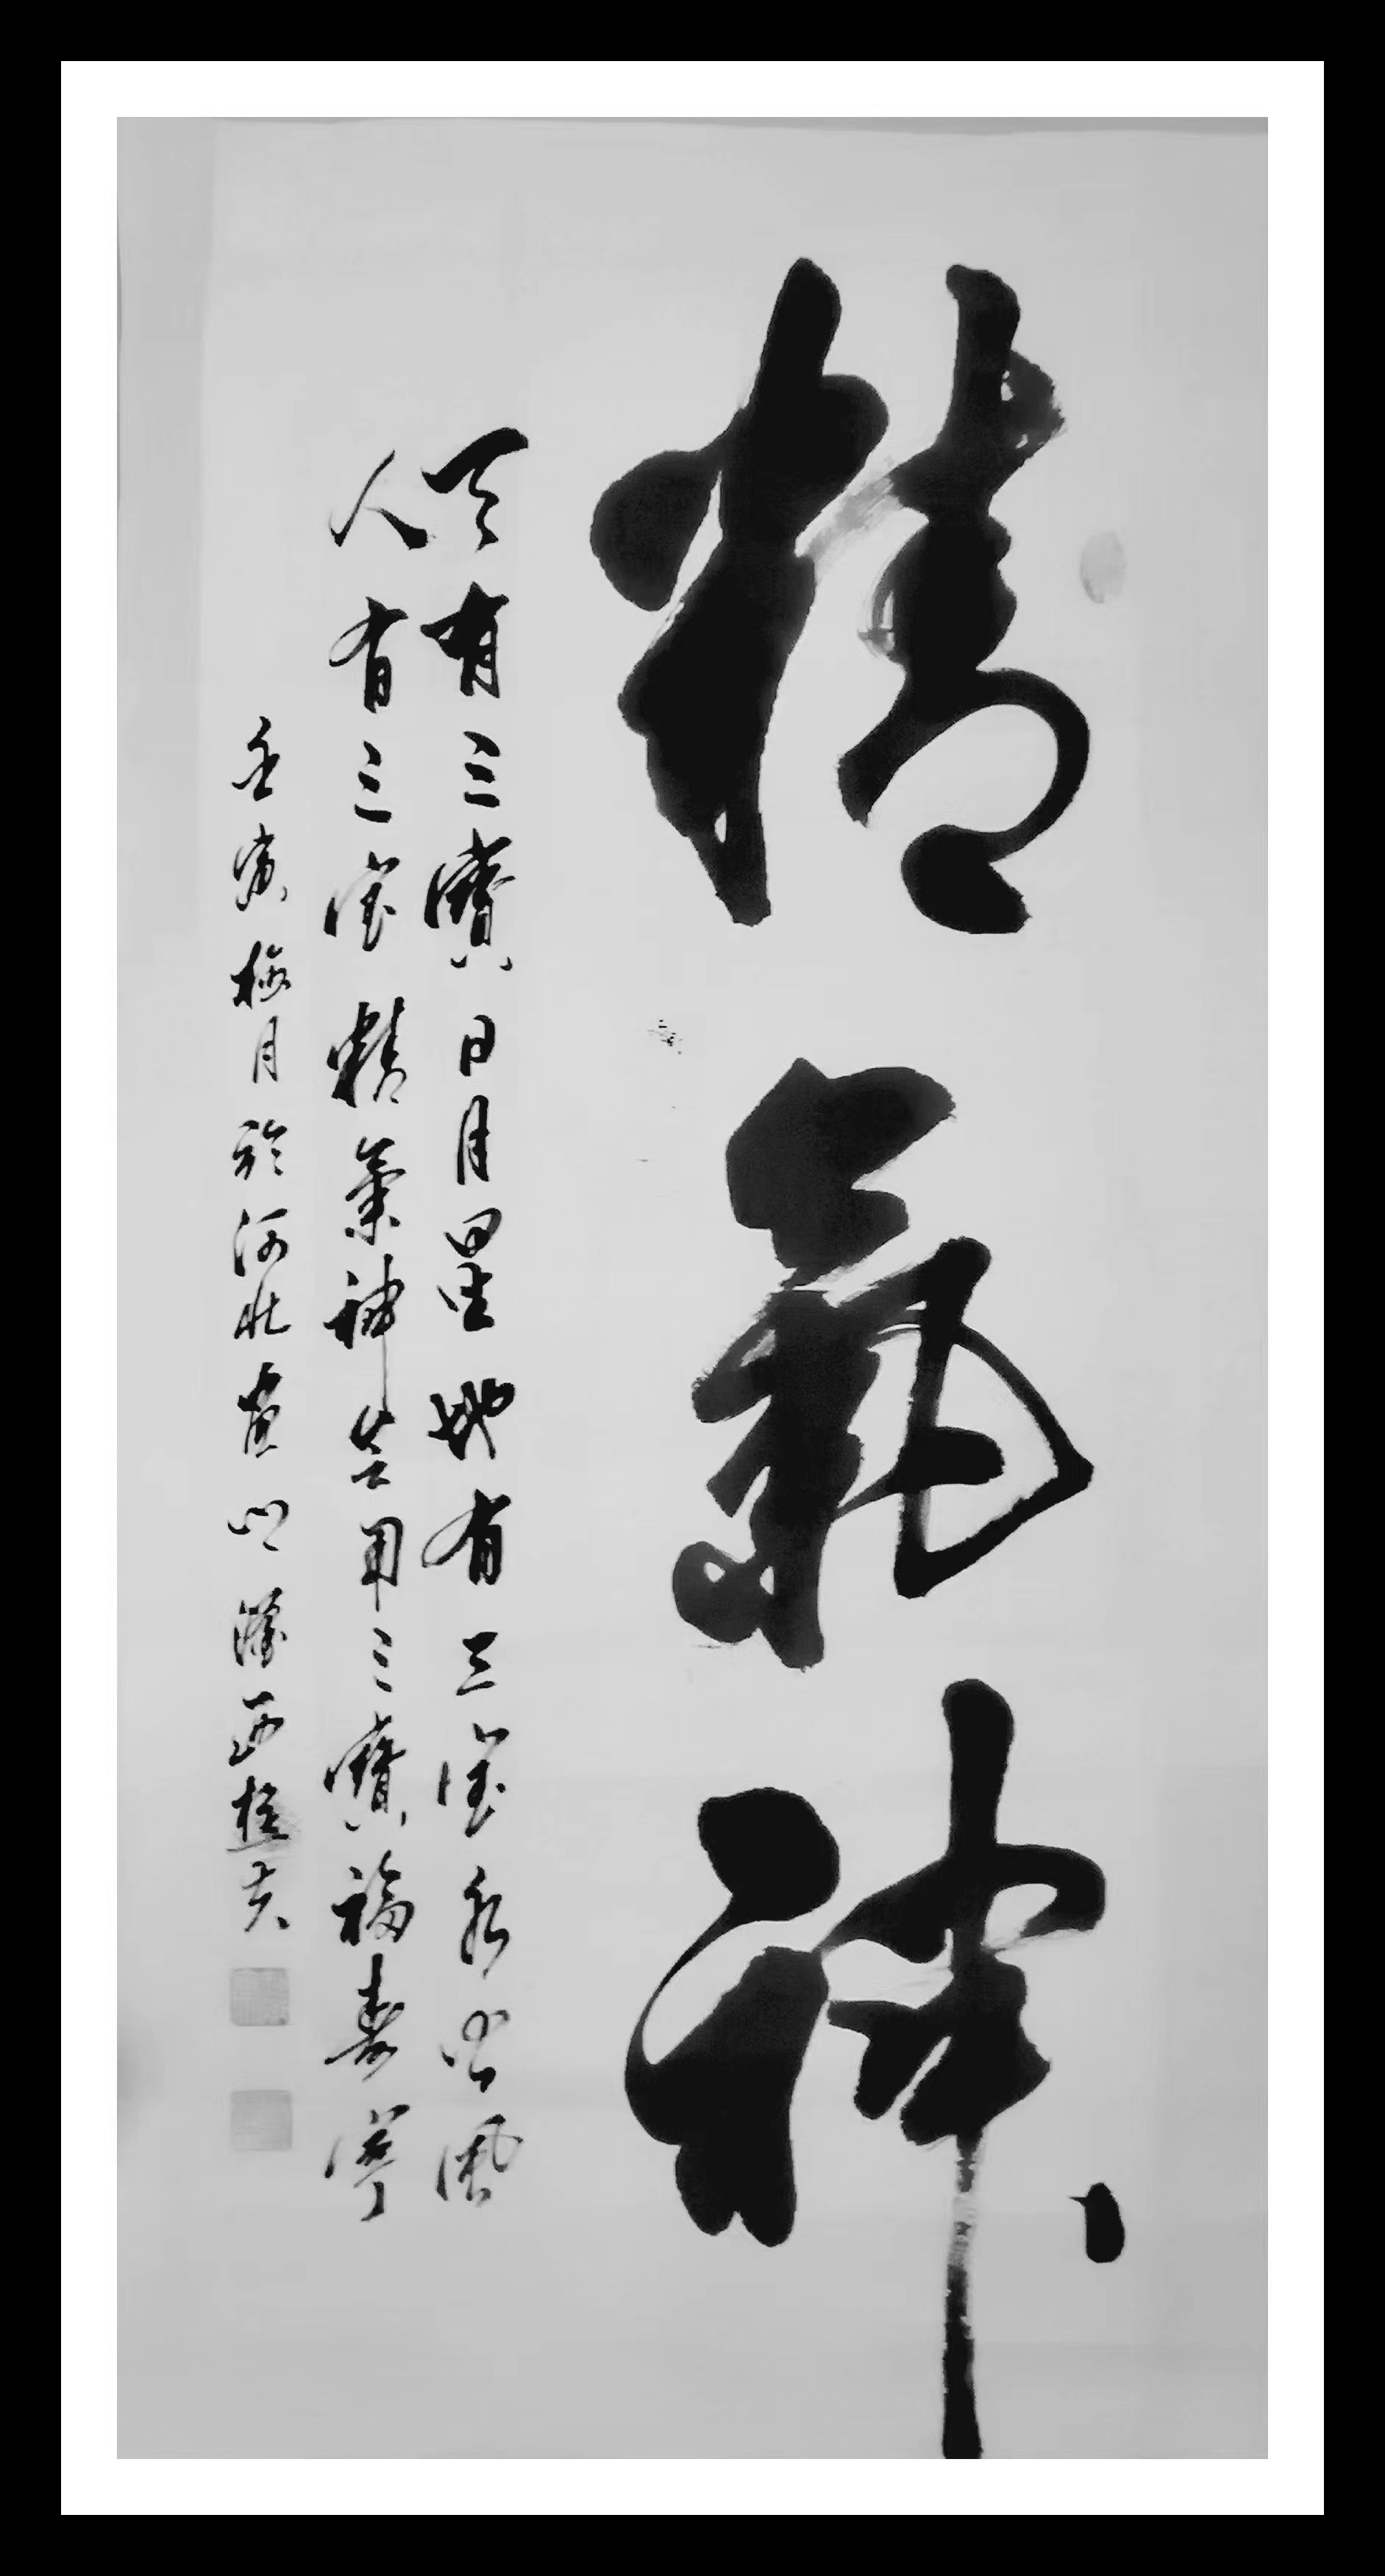 精氣神
天有三寶日月星地有三寶水火風
人有三寶精氣神善用三寶福壽寧
壬寅梅月於河北